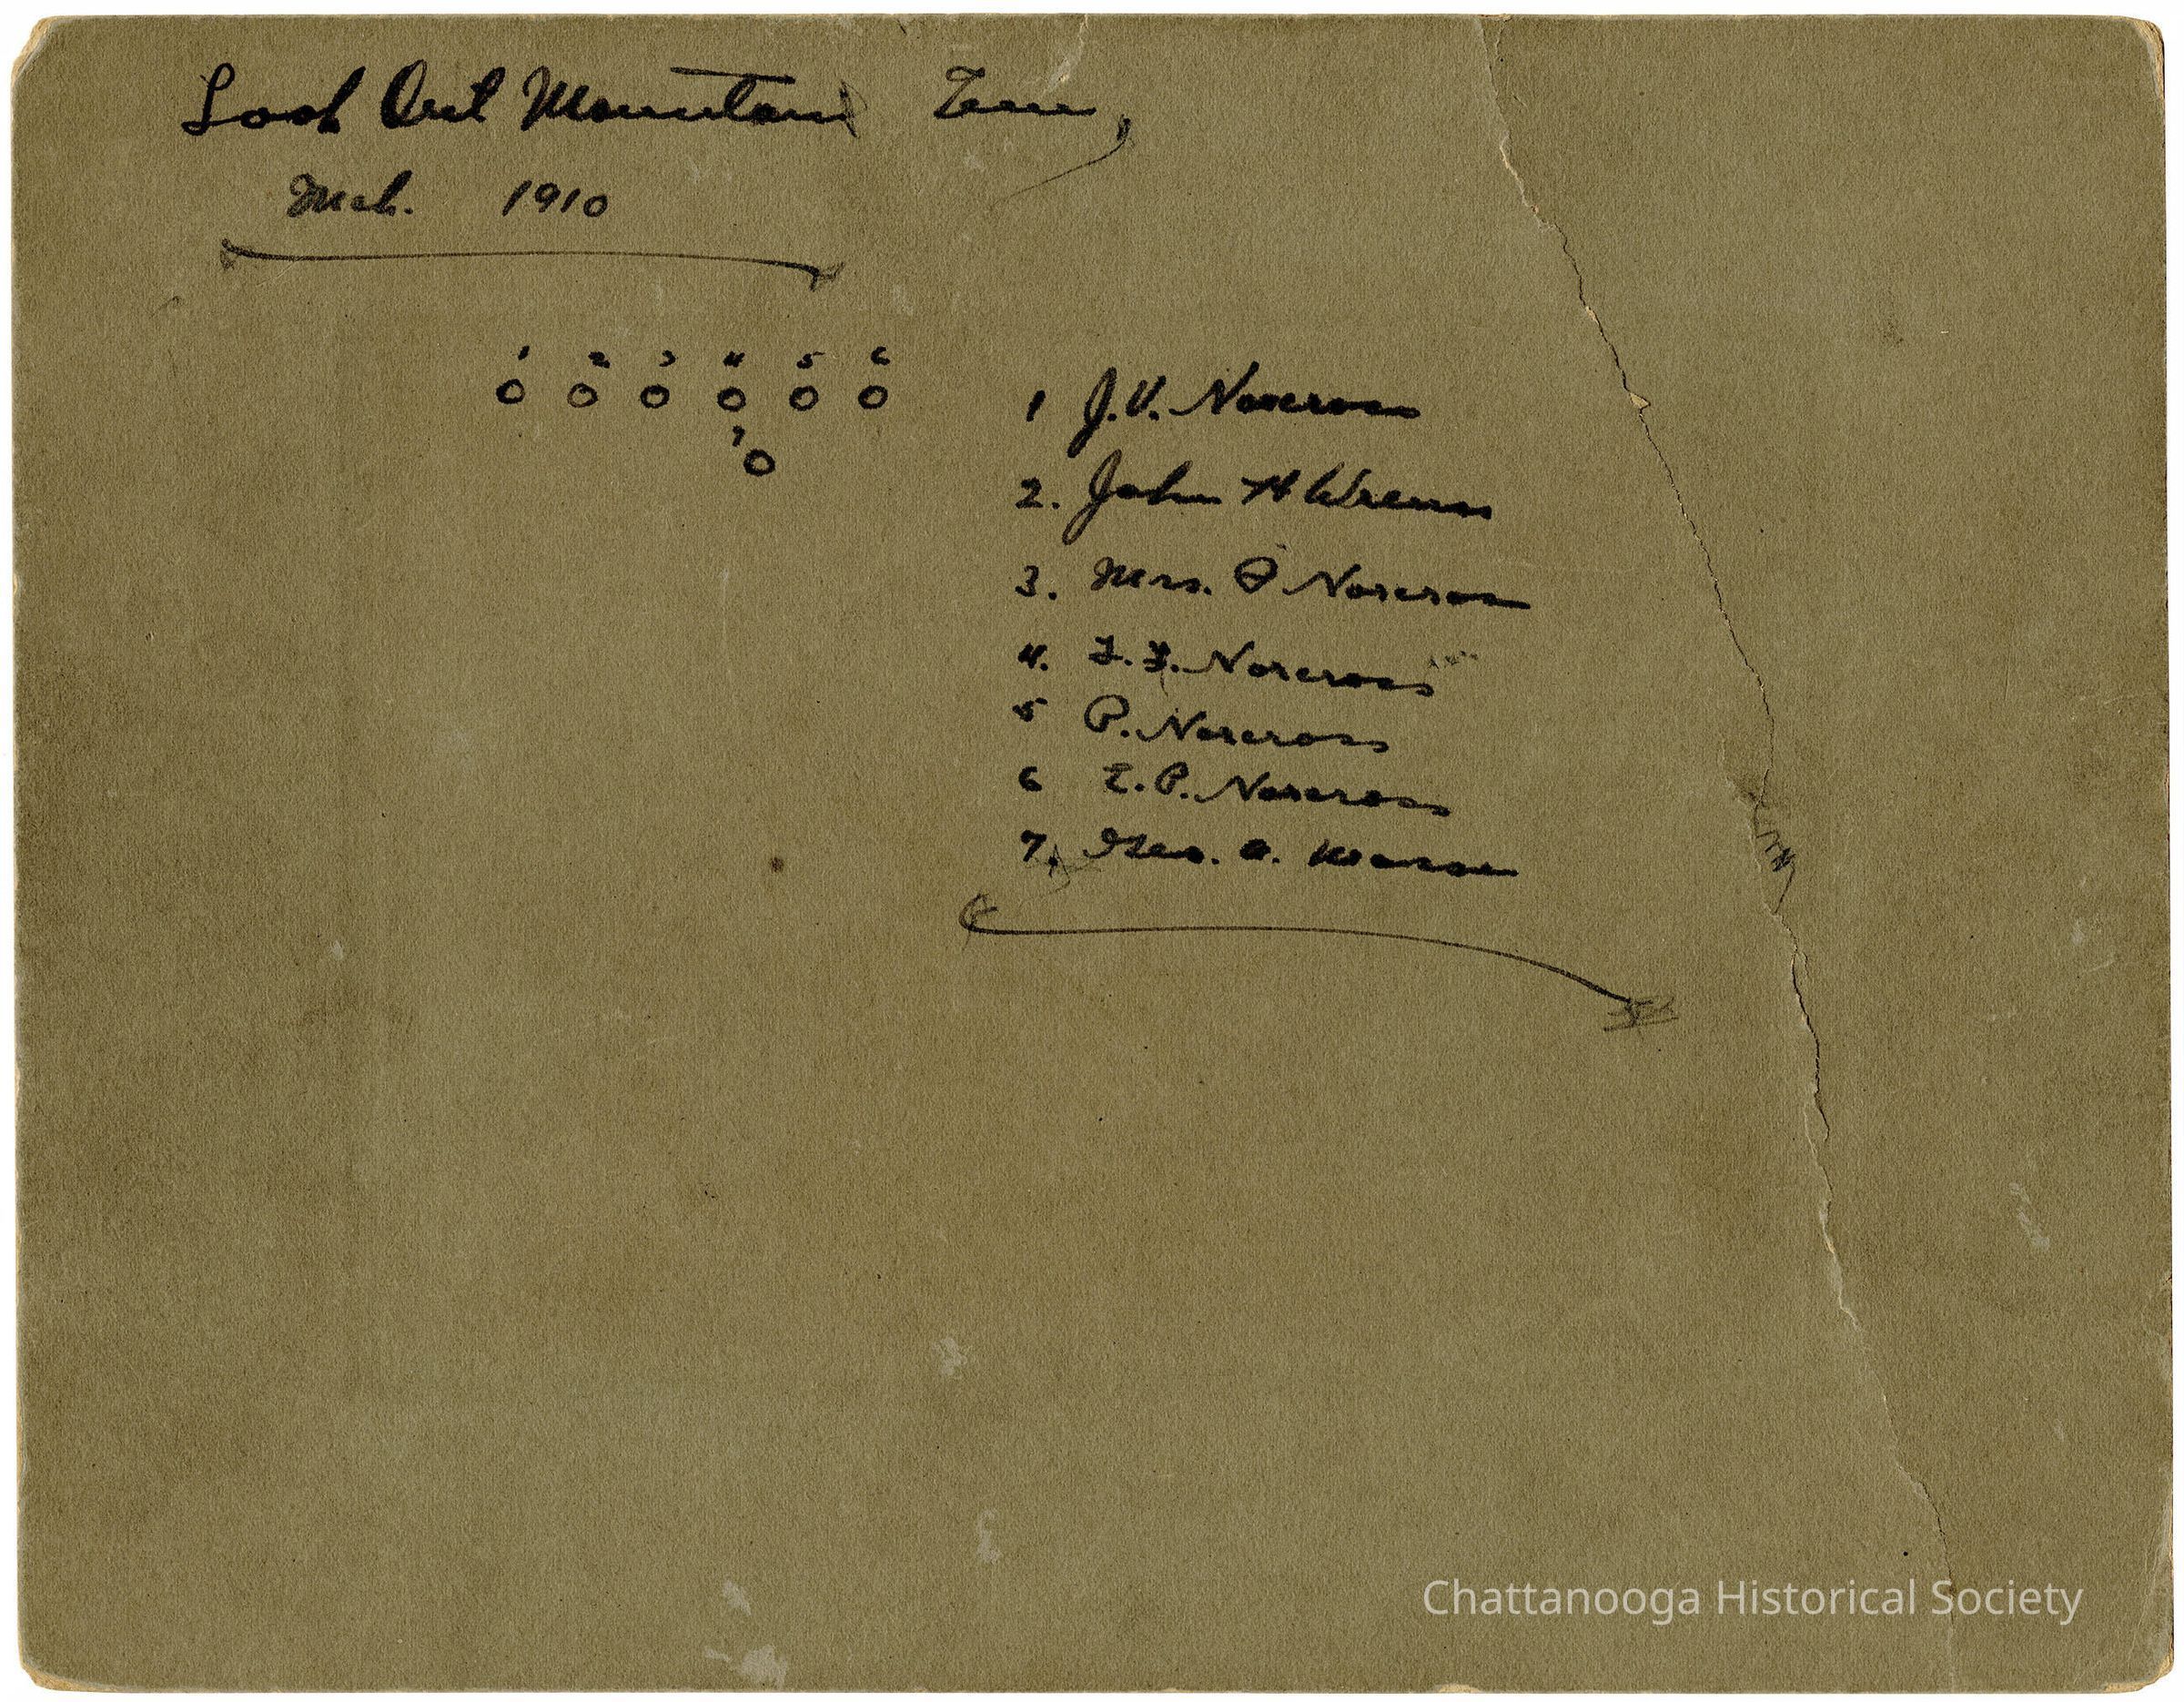 Look Out Mountain Tenn,
Mch. 1910
1 2 3 4 5 6
7
1 J.V. Norcross
2. John H Wrenn
3. Mrs. P Norcross
4. F. F. Norcross
5 P. Norcross
6 E. P. Norcross
7. Geo. A. Mason
Chattanooga Historical Society